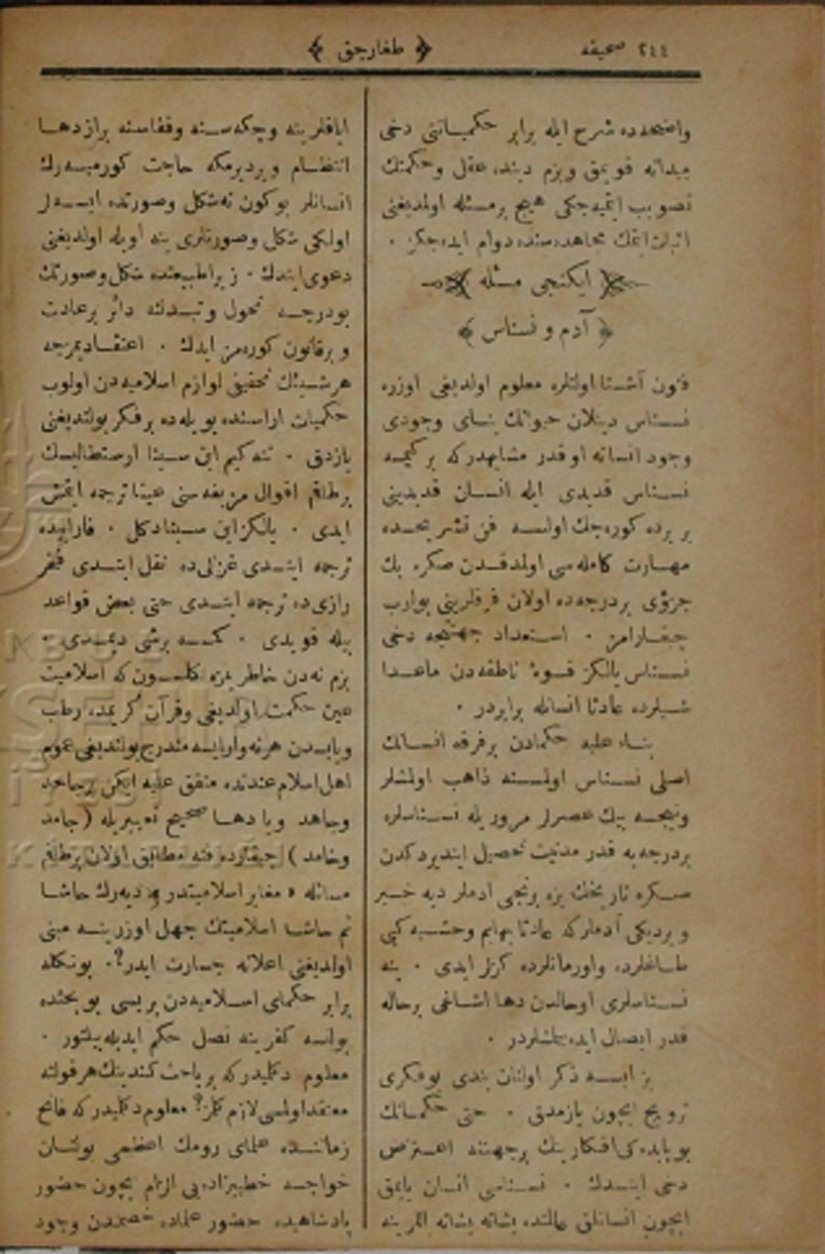 ٢٤٤ صحیفه
﴿ طغارجق ﴾
واضحه‌ده شرح ایله برابر حکمیاتنی دخی
میدانه قویمق وبزم دیند، عقل وحکمتك
تصویب ایتمیه‌جکی هیچ برمسئله اولمدیغنی
اثبات ایتمك مجاهده‌سنده دوام ایده‌جکز .
ایکنجی مسئله
﴿ آدم و نسناس ﴾
فنون آشنا اولنلره معلوم اولدیغی اوزره
نسناس دینلان حیوانك بنای وجودی
وجود انسانه اوقدر مشابهدرکه برکیمسه
نسناس قدیدی ایله انسان قدیدینی
بریرده کوره‌جك اولسه فن تشریحده
مهارت کامله‌سی اولمدقدن صکره پك
جزؤی بردرجه‌ده اولان فرقلرینی بولوب
چیقارامز . استعداد جهتنجه دخی
نسناس یالکز قوۀ ناطقه‌دن ماعدا
شیلرده عادتا انسانله برابردر .
بناء علیه حکمادن برفرقه انسانك
اصلی نسناس اولمسنه ذاهب اولمشلر
ونیجه بیك عصرلر مروریله نسناسلره
بردرجه‌یه قدر مدنیت تحصیل ایتدیردکدن
صکره تاریخك بزه برنجی آدملر دیه خبر
ویردیکی آدملرکه عادتا بهایم وحشیه کبی
طاغلرده واورمانلرده کزلر ایدی . ینه
نسناسلری اوحالدن دها اشاغی برحاله
قدر ایصال ایده‌بیلمشلردر .
بز ایسه ذکر اولنان بندی بوفکری
ترویج ایچون یازمدق . حتی حکمانك
بوبابده‌کی افکارینك برجهتنه اعتراض
دخی ایتدك . نسناسی انسان یاپمق
ایچون انسانلق عالمنده یشانه یشانه اللرینه
ایاقلرینه وچکه‌سنه وقفاسنه برازدها
انتظام ویردیرمکه حاجت کورمیه‌رك
انسانلر بوکون نه‌شکل وصورتده ایسه‌لر
اولکی شکل وصورتلری ینه اویله اولدیغنی
دعوی ایتدك . زیرا طبیعتده شکل وصورتك
بودرجه تحول وتبدلنه دائر برعادت
وبرقانون کوره‌مز ایدك . اعتقادیمزجه
هرشیئك تحقیقی لوازم اسلامیه‌دن اولوب
حکمیات اراسنده بویله‌ده برفکر بولندیغنی
یازدق . نته‌کیم ابن سینا ارسطالیسك
برطاقم اقوال مزیفه‌سنی عینا ترجمه ایتمش
ایدی . یالکز ابن سینا دکل . فارابیده
ترجمه ایتدی غزالی‌ده نقل ایتدی فخر
رازی‌ده ترجمه ایتدی حتی بعض قواعد
بیله قویدی . کمسه برشی دیمدی .
بزم نه‌دن خاطریمزه کلسون که اسلامیت
عین حکمت اولدیغی وقرآن کریمده رطب
ویابسدن هرنه وارایسه مندرج بولندیغی عموم
اهل اسلام عندنده متفق علیه ایکن برجاحد
وجاهد ویا دها صحیح تعبیریله ( جامد
وخامد ) چیقارده فنه مطابق اولان برطاقم
مسائله « مغایر اسلامیتدر » دیه‌رك حاشا
ثم حاشا اسلامیتك جهل اوزرینه مبنی
اولدیغنی اعلانه جسارت ایدر؟. بونکله
برابر حکمای اسلامیه‌دن بریسی بوبحثده
بولنسه کفرینه نصل حکم ایدیله‌بیلیور .
معلوم دکلیدرکه برباحث کندینك هرقولنه
معتقد اولمسی لازم کلمز؟ معلوم دکلیدرکه فاتح
زماننده علمای رومك اعظمی بولنان
خواجه خطیبزاده‌یی الزام ایچون حضور
پادشاهیده حضور علماده خصمندن وجود